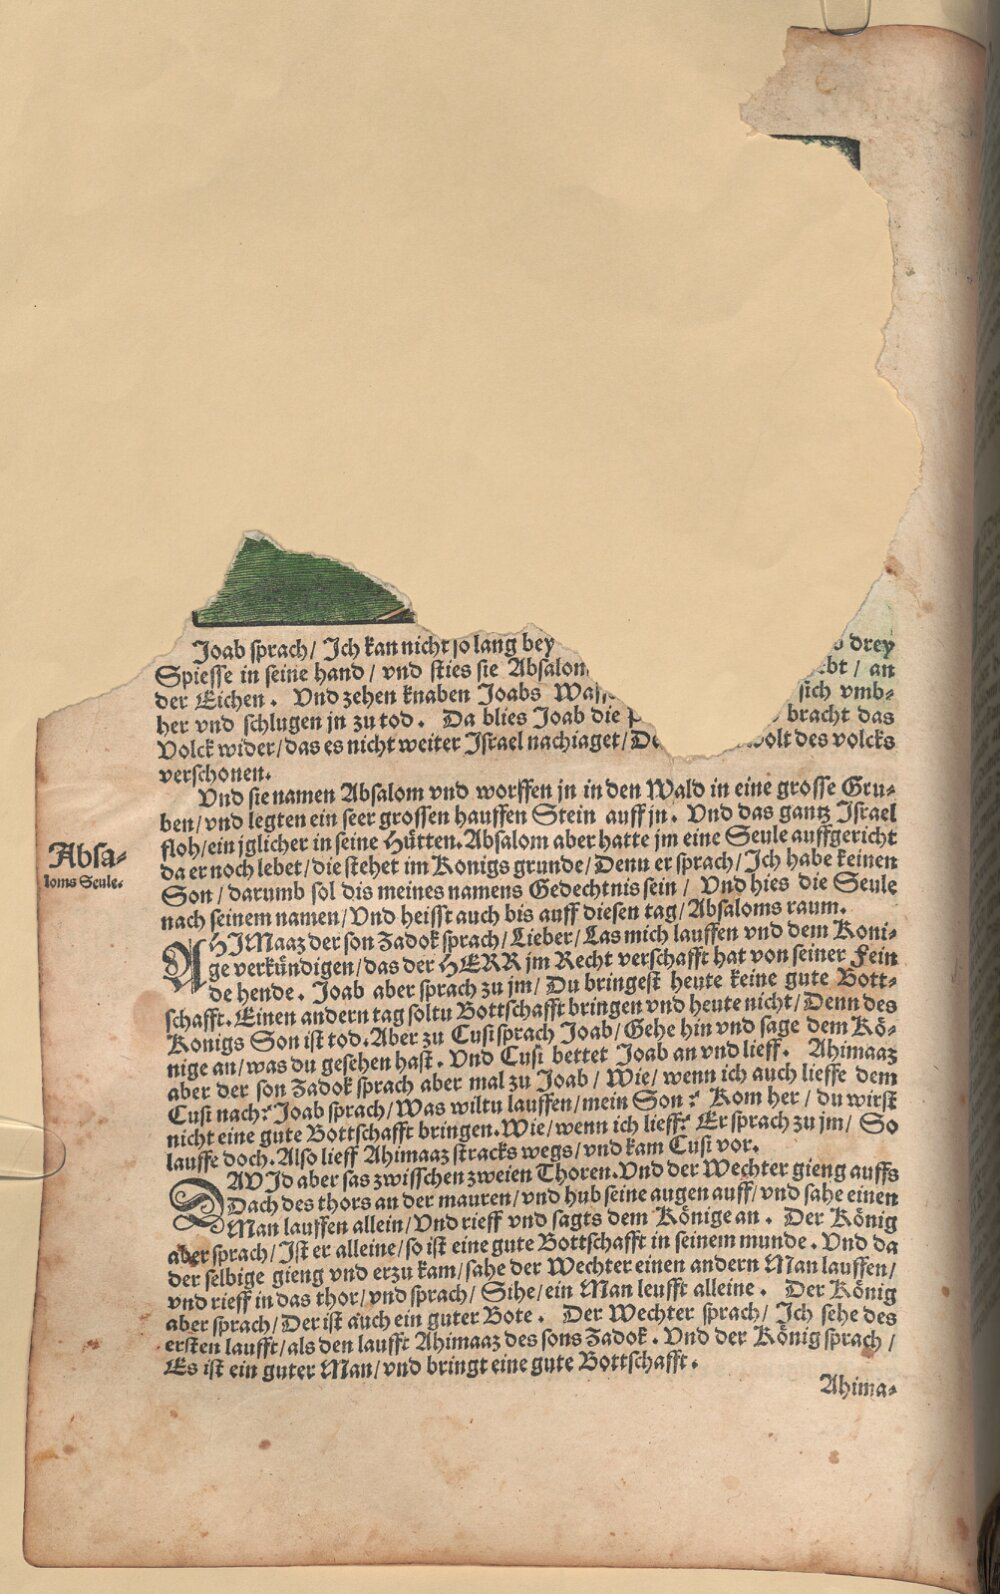 Joab sprach/ Ich kan nicht so lang bey drey
Spiesse in seine hand/ vnd sties sie Absalon an
der Eichen. Vnd zehen knaben Joabs sich vmb-
her vnd schlugen jn zu tod. Da blies Joab die bracht das
Volck wider/ das es nicht weiter Israel nachiaget/ wolt des volcks
verschonen.
Vnd sie namen Absalom vnd worffen jn in den Wald in eine grosse Gru-
ben/ vnd legten ein seer grossen hauffen Stein auff jn. Vnd das gantz Israel
floh/ ein jglicher in seine Hütten. Absalom aber hatte jm eine Seule auffgericht
Absa-
loms Seule.
da er noch lebet/ die stehet im Königs grunde/ Denn er sprach/ Ich habe keinen
Son/ darumb sol dis meines namens Gedechtnis sein/ Vnd hies die Seule
nach seinem namen/ Vnd heisst auch bis auff diesen tag/ Absaloms raum.
AHIMaaz der son Zadok sprach/ Lieber/ Las mich lauffen vnd dem Köni-
ge verkündigen/ das der HERR jm Recht verschafft hat von seiner Fein
de hende. Joab aber sprach zu jm/ Du bringest heute keine gute Bott-
schafft. Einen andern tag soltu Bottschafft bringen vnd heute nicht/ Denn des
Königs Son ist tod. Aber zu Cusi sprach Joab/ Gehe hin vnd sage dem Kö-
nige an/ was du gesehen hast. Vnd Cusi bettet Joab an vnd lieff. Ahimaaz
aber der son Zadok sprach aber mal zu Joab/ Wie/ wenn ich auch lieffe dem
Cusi nach? Joab sprach/ Was wiltu lauffen/ mein Son? Kom her/ du wirst
nicht eine gute Bottschafft bringen. Wie/ wenn ich lieff? Er sprach zu jm/ So
lauffe doch. Also lieff Ahimaaz stracks wegs/ vnd kam Cusi vor.
DAVId aber sas zwisschen zweien Thoren. Vnd der Wechter gieng auffs
Dach des thors an der mauren/ vnd hub seine augen auff/ vnd sahe einen
Man lauffen allein/ Vnd rieff vnd sagts dem Könige an. Der König
aber sprach/ Ist er alleine/ so ist eine gute Bottschafft in seinem munde. Vnd da
der selbige gieng vnd erzu kam/ sahe der Wechter einen andern Man lauffen/
vnd rieff in das thor/ vnd sprach/ Sihe/ ein Man leufft alleine. Der König
aber sprach/ Der ist auch ein guter Bote. Der Wechter sprach/ Ich sehe des
ersten laufft/ als den laufft Ahimaaz des sons Zadok. Vnd der König sprach/
Es ist ein guter Man/ vnd bringt eine gute Bottschafft.
Ahima-